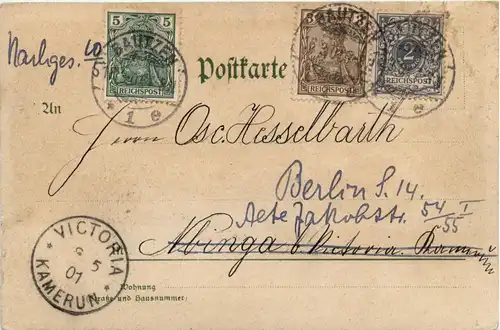 5 3 2
BAUTZEN BAUTZEN
REICHSPOST REICHSPOST REICHSPOST
* 1 e e
Nachges.
Postkarte
An
Herrn Osc. Hesselbarth
Berlin S. 14.
Alte Jakobstr. 54/55 I
Abinga b/Victoria. Kamerun
VICTORIA
5
01
* KAMERUN *
Wohnung
(Straße und Hausnummer)